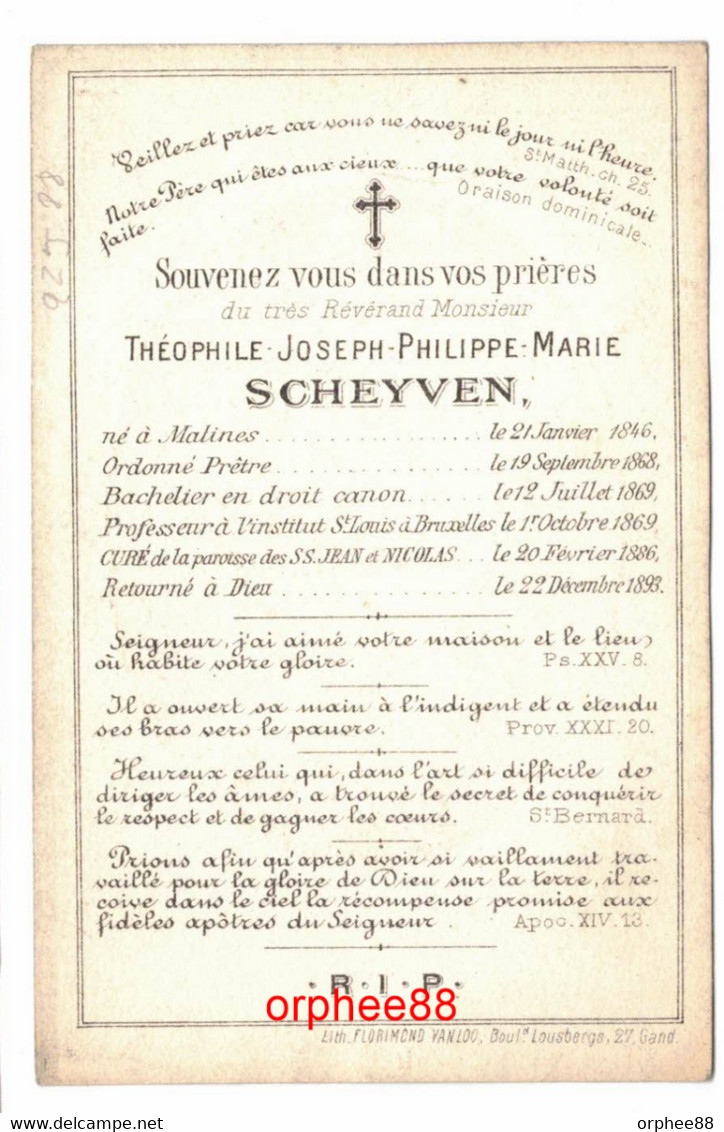 Veillez et priez car vous ne savez ni le jour ni l'heure.
St Matth. ch. 25.
Notre Père qui êtes aux cieux .... que votre volonté soit
faite.
Oraison dominicale.
Souvenez vous dans vos prières
du très Révérand Monsieur
THÉOPHILE-JOSEPH-PHILIPPE-MARIE
SCHEYVEN,
né à Malines . . . . . . . . . . . . . . . . . . le 21 Janvier 1846,
Ordonné Prêtre . . . . . . . . . . . . . . . . . le 19 Septembre 1868,
Bachelier en droit canon . . . . . . le 12 Juillet 1869,
Professeur à l'institut St Louis à Bruxelles le 1r Octobre 1869
CURÉ de la paroisse des SS. JEAN et NICOLAS . . . le 20 Février 1886,
Retourné à Dieu . . . . . . . . . . . . . . . le 22 Décembre 1893.
Seigneur, j'ai aimé votre maison et le lieu
où habite votre gloire. Ps. XXV. 8.
Il a ouvert sa main à l'indigent et a étendu
ses bras vers le pauvre. Prov. XXXI. 20.
Heureux celui qui, dans l'art si difficile de
diriger les âmes, a trouvé le secret de conquérir
le respect et de gagner les cœurs. St Bernard.
Prions afin qu'après avoir si vaillament tra-
vaillé pour la gloire de Dieu sur la terre, il re-
coive dans le ciel la récompense promise aux
fidèles apôtres du Seigneur . Apoc. XIV. 13.
· R · I · P ·
orphee88
Lith. FLORIMOND VANLOO, Boul.d Lousbergs, 27, Gand.
orphee88